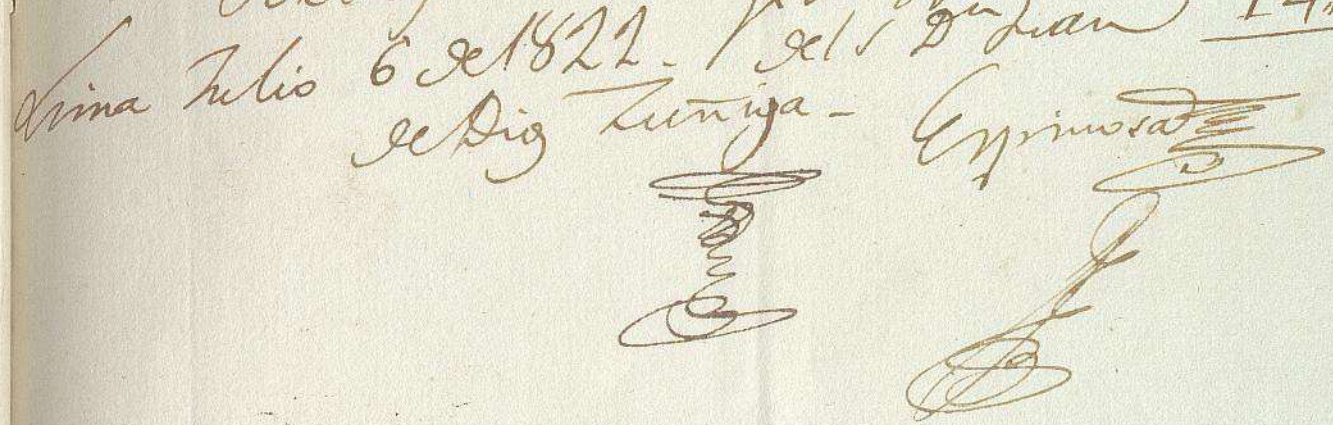 Lima Julio 6 de 1822. del S D Juan
de Dios Zuñiga - Espinosa